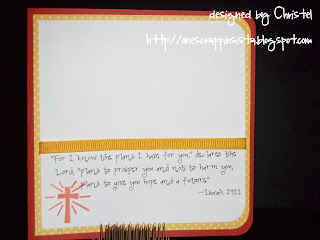 designed by Christel
http://onescrappinsista.blogspot.com
"For I know the plans I have for you," declares the
Lord, "plans to prosper you and not to harm you,
plans to give you hope and a future."
-Isaiah 29:11